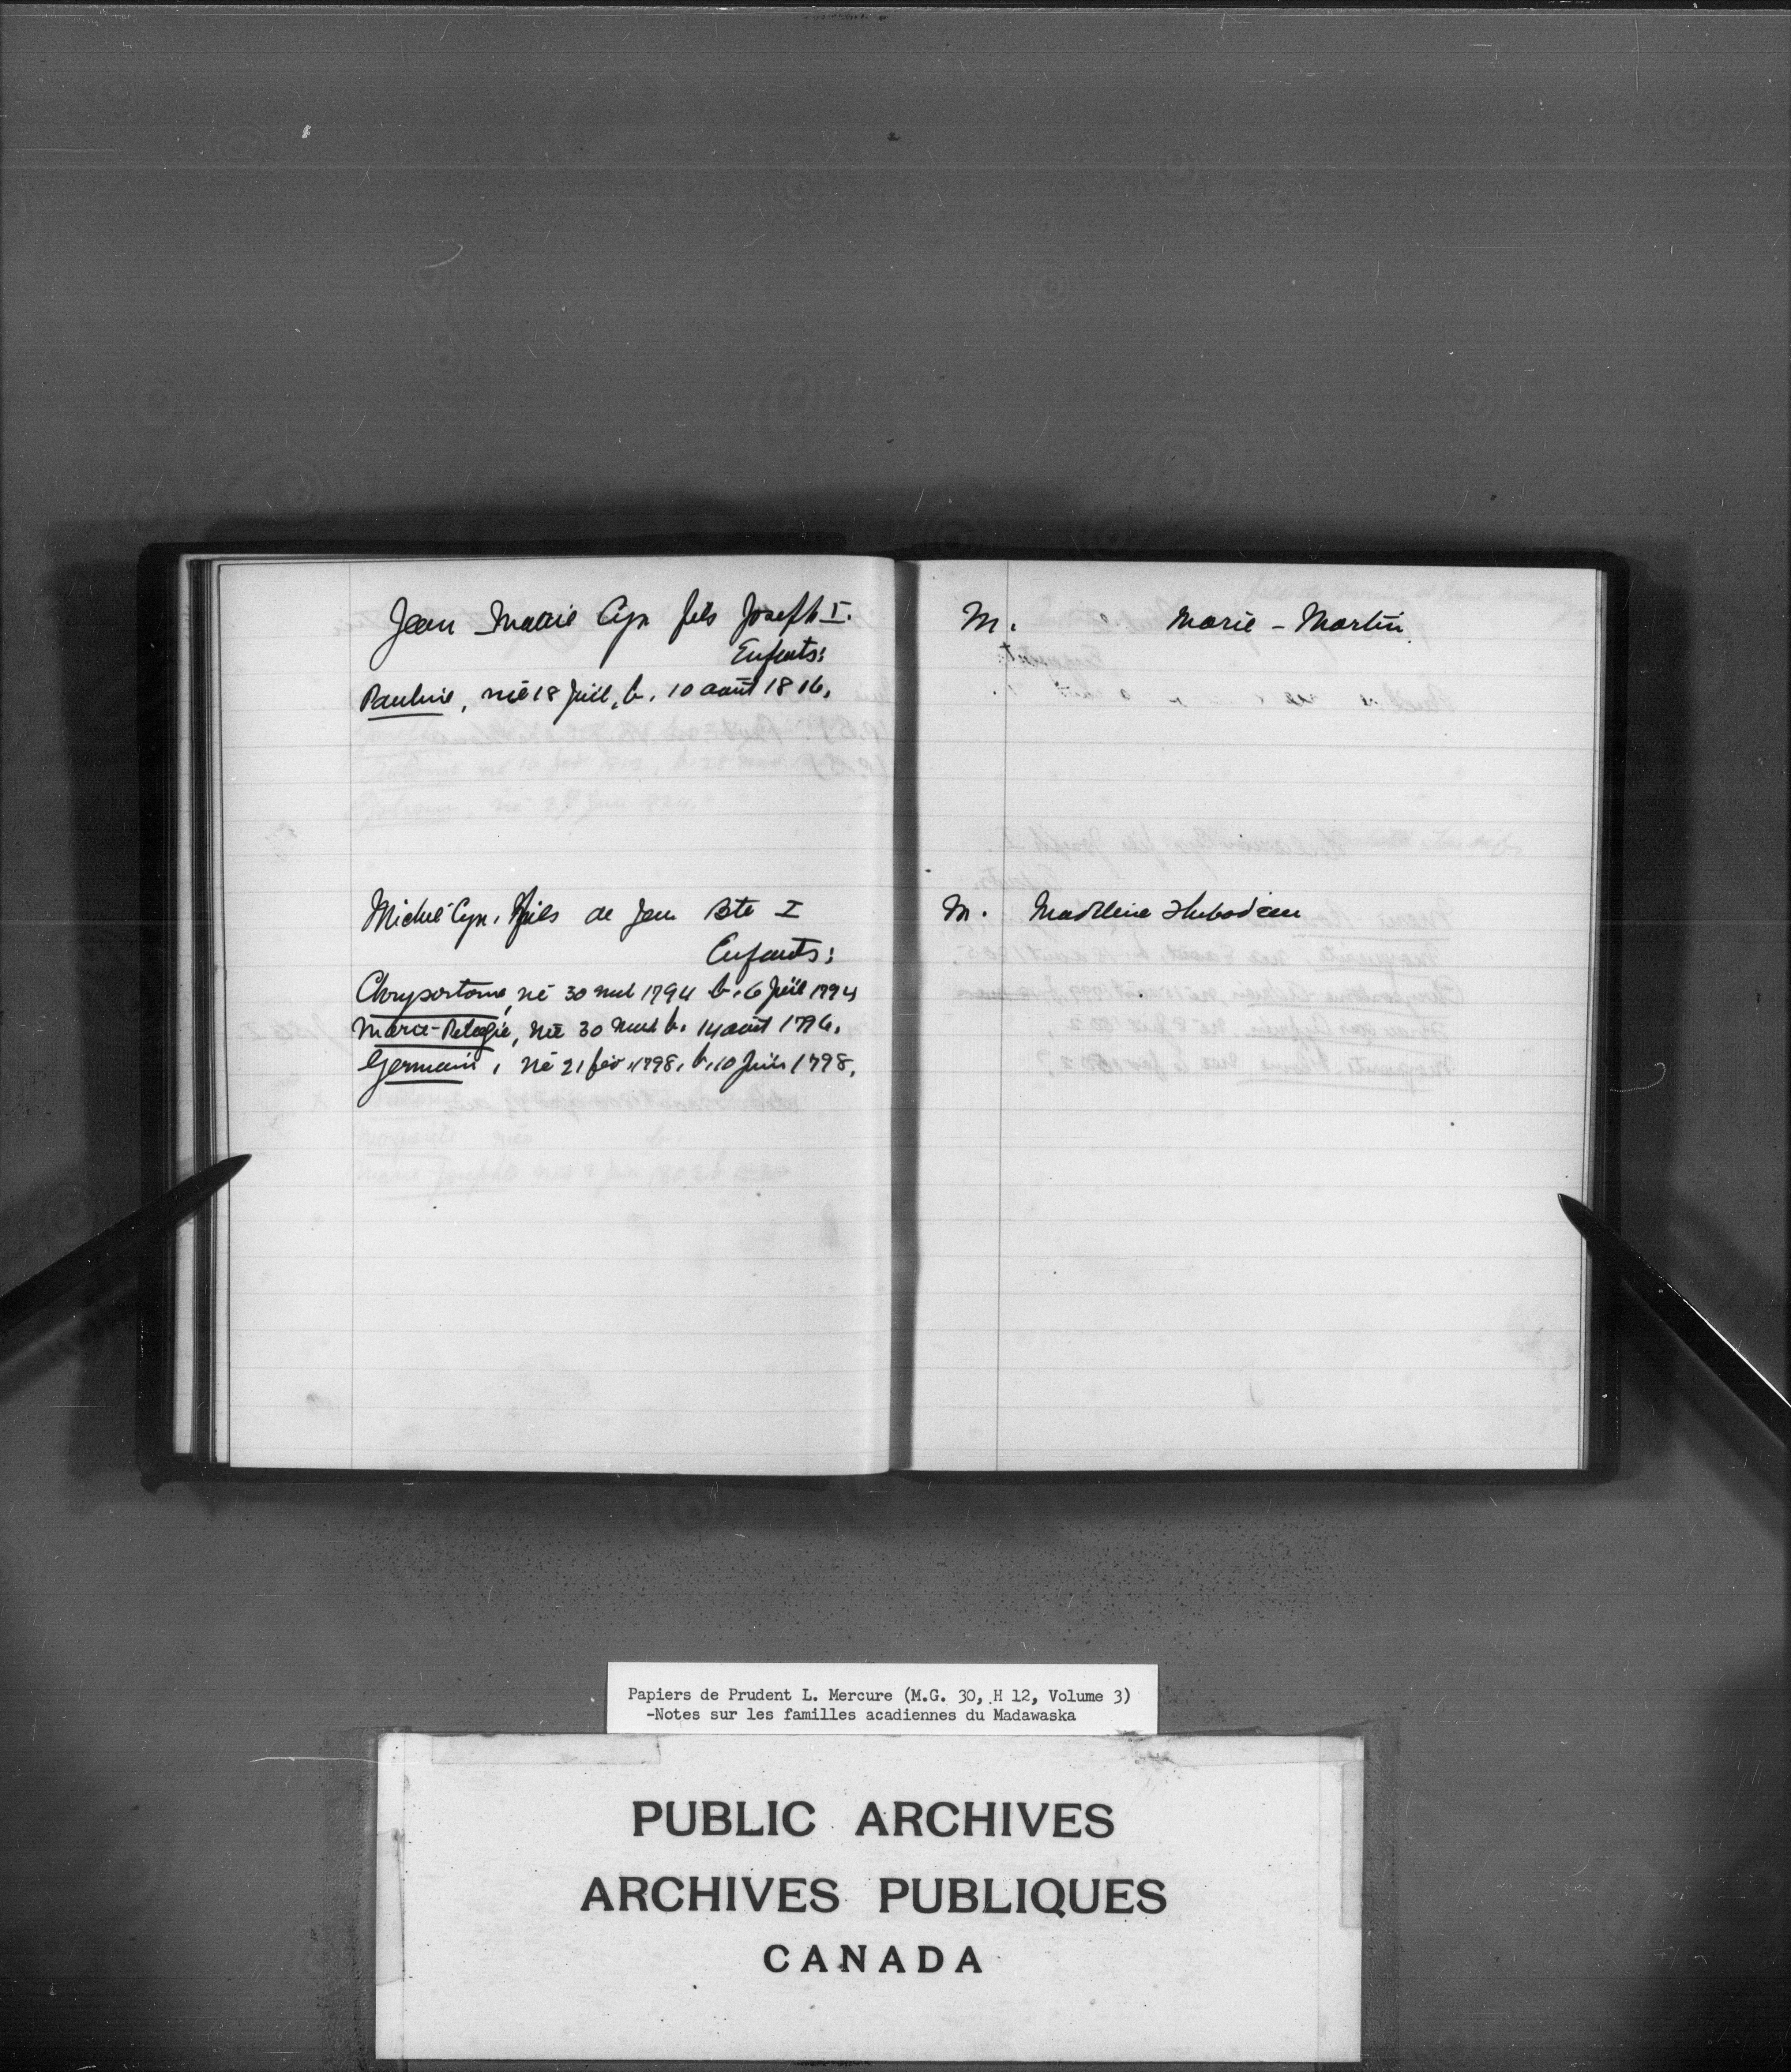 Jean Marie Cyr fils Joseph I. M. Marie - Martin
Enfants:
Pauline, née 18 Juil, b. 10 août 1816.
Michel Cyr, fils de Jean Bte I M. Madeleine Thibodeau
Enfants:
Chrysostome, né 30 1794 b. 6 Juil 1794
Marie-Pelagie, née 30 b. 14 août 1796.
Germain, né 21 fév. 1798, b. 10 Juin 1798.
Papiers de Prudent L. Mercure (M.G. 30, H 12, Volume 3)
-Notes sur les familles acadiennes du Madawaska
PUBLIC ARCHIVES
ARCHIVES PUBLIQUES
CANADA